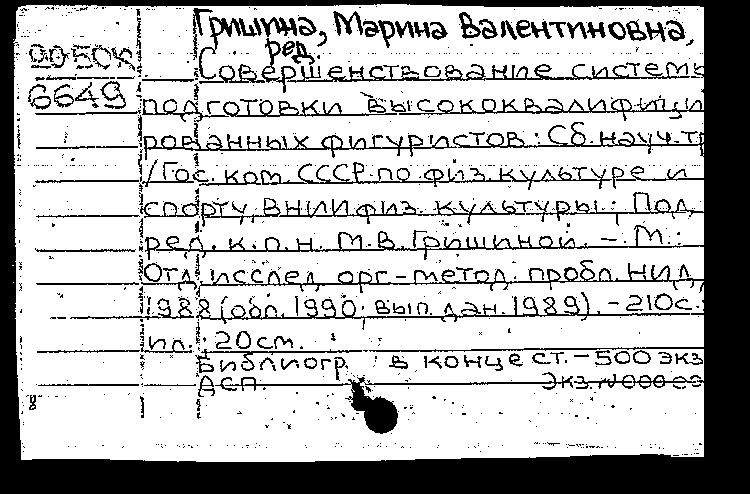 Гришина, Марина Валентиновна,
ред.
Совершенствование системы
подготовки высококвалифици
рованных фигуристов: Сб. науч. тр
/Гос. ком. СССР по физ. культуре и
спорту, ВНИИ физ. культуры; Под
ред. к.п.н. М.В. Гришиной. – М.:
Отд. исслед. орг-метод. пробл. НИД,
1988 (обл. 1990; вып. дан. 1989). – 210с.:
ил.; 20см.
Библиогр. в конце ст. – 500 экз
ДСП.
6649
8